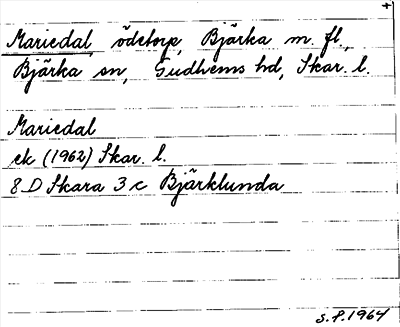 +
Mariedal, ödetorp, Bjärka m. fl.,
Bjärka sn, Gudhems hd, Skar. l.
Mariedal
ek (1962) Skar. l.
8 D Skara 3 c Bjärklunda
S.P. 1964